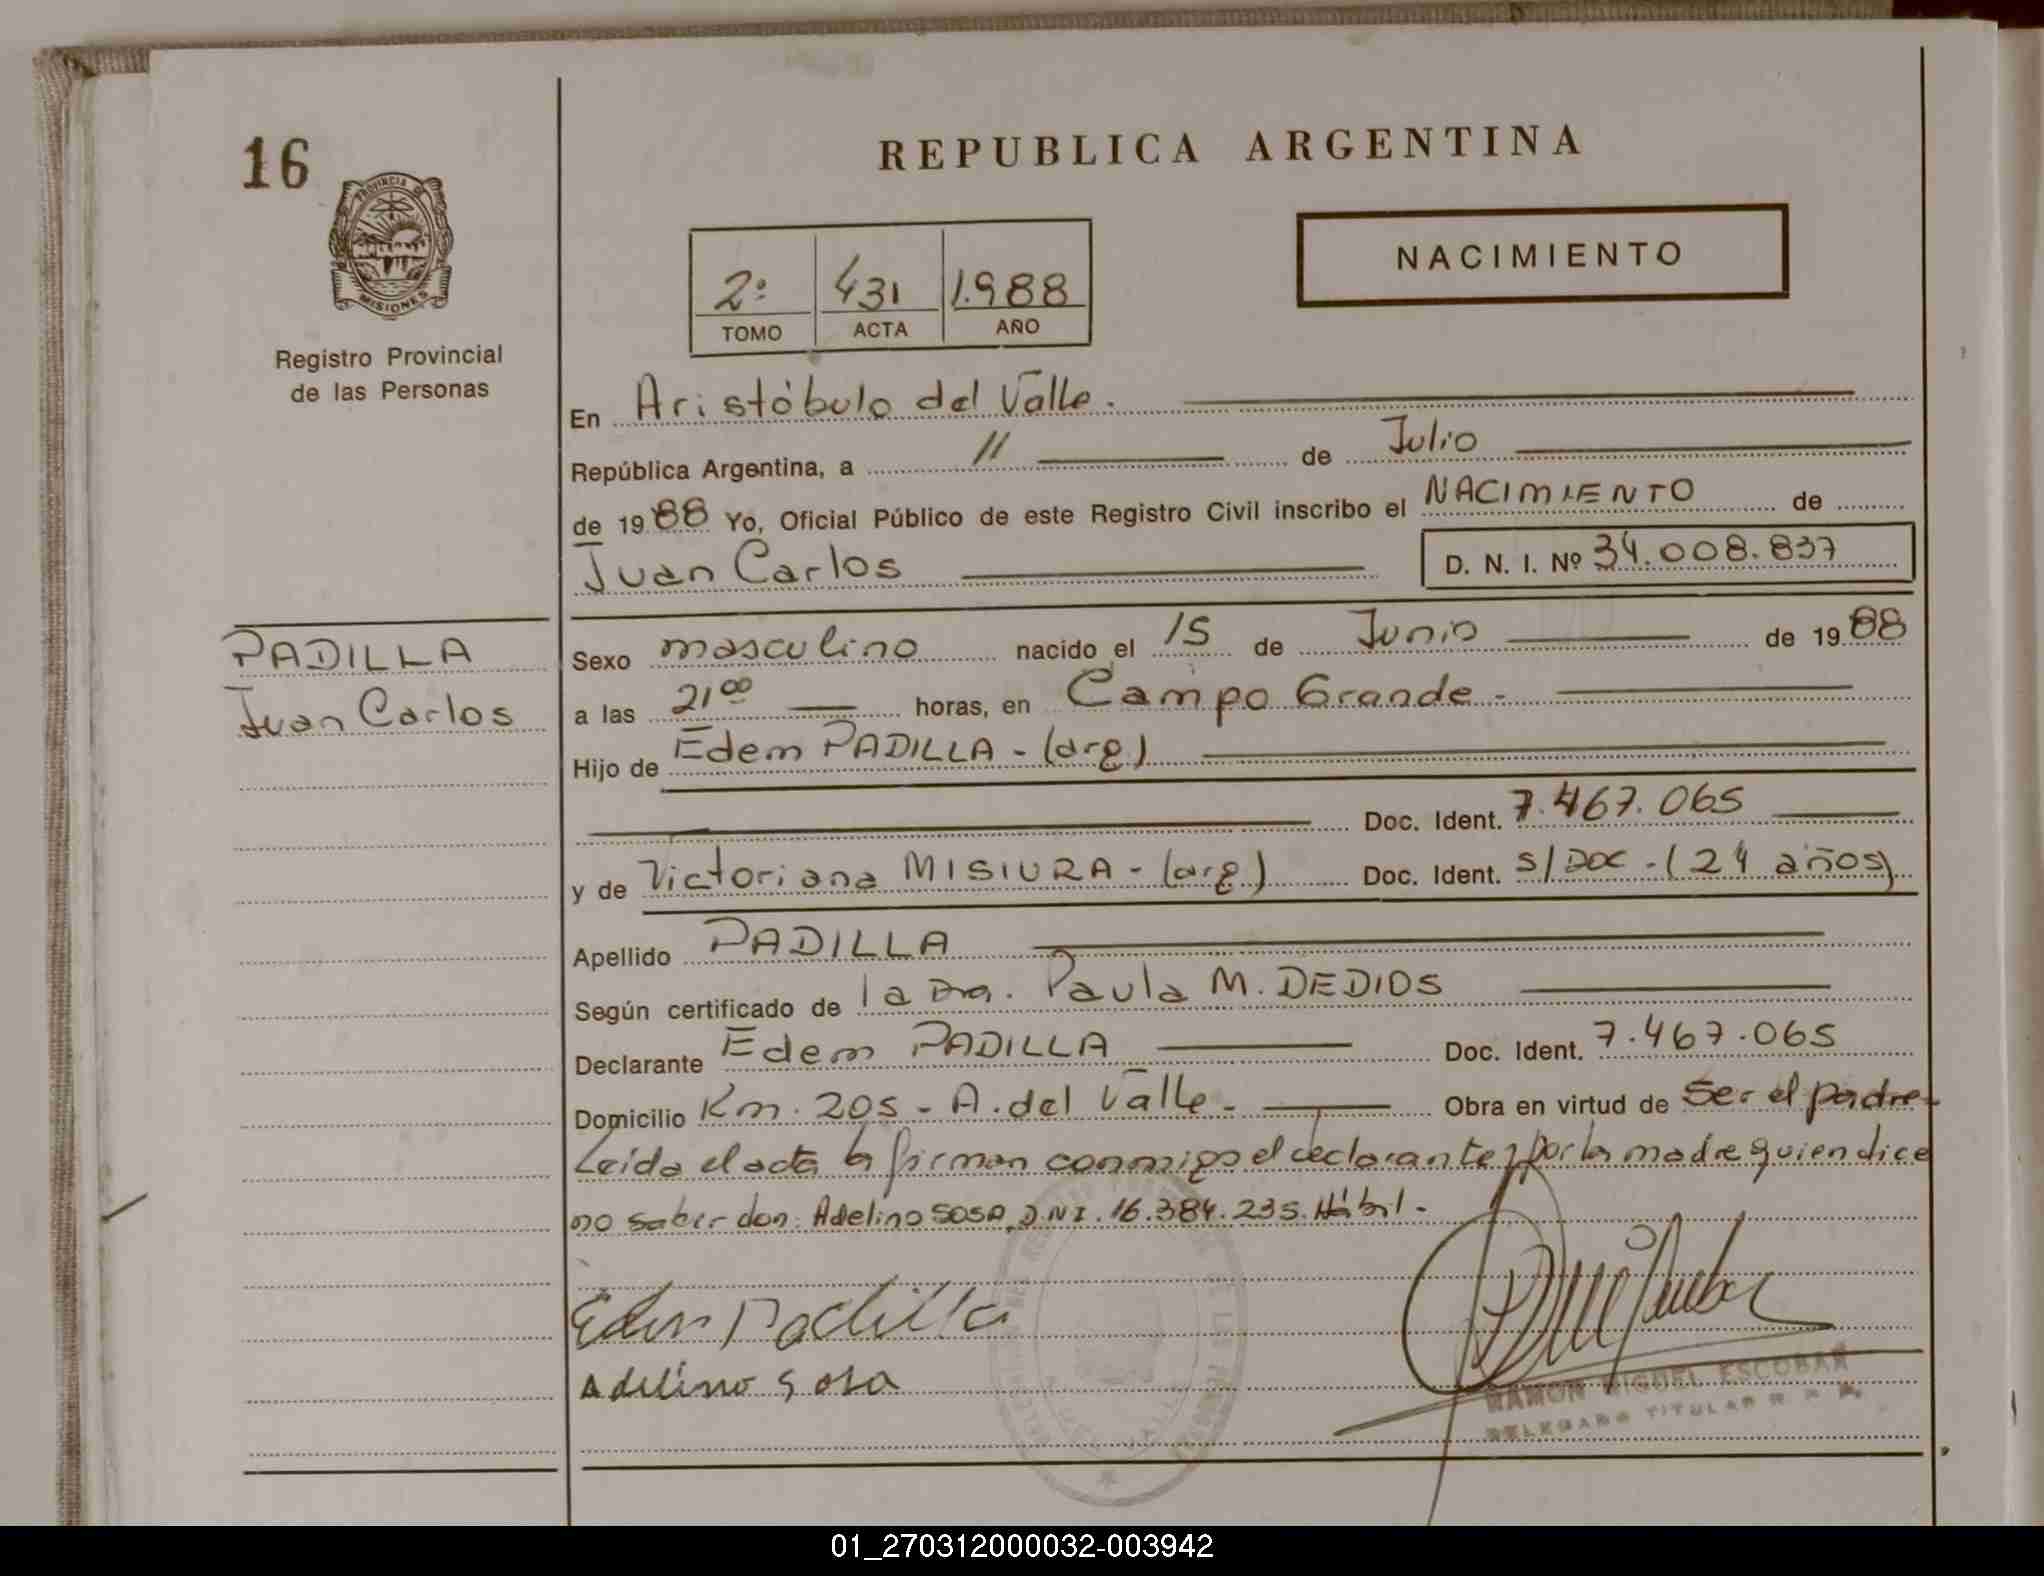 16
REPUBLICA ARGENTINA
PROVINCIA DE
MISIONES
Registro Provincial
de las Personas
2º 431 1.988
TOMO ACTA AÑO
NACIMIENTO
En Aristóbulo del Valle.
República Argentina, a 11 de Julio
de 1988 Yo, Oficial Público de este Registro Civil inscribo el NACIMIENTO de
Juan Carlos D. N. I. Nº 34.008.837
PADILLA
Juan Carlos
Sexo masculino nacido el 15 de Junio de 1988
a las 21⁰⁰ horas, en Campo Grande -
Hijo de Edem PADILLA - (arg)
Doc. Ident. 7.467.065
y de Victoriana MISIURA - (arg) Doc. Ident. S/DOC - (24 años)
Apellido PADILLA
Según certificado de la Dra. Paula M. DEDIOS
Declarante Edem PADILLA Doc. Ident. 7.467.065
Domicilio Km. 205 - A. del Valle - Obra en virtud de Ser el padre-
Leida el acta la firman conmigo el declarante y por la madre quien dice
no saber don: Adelino SOSA, D.N.I. 16.384.235. Hábil.-
Edem Padilla
Adelino Sosa
RAMON MIGUEL ESCOBAR
DELEGADO TITULAR R. P. P.
01_270312000032-003942